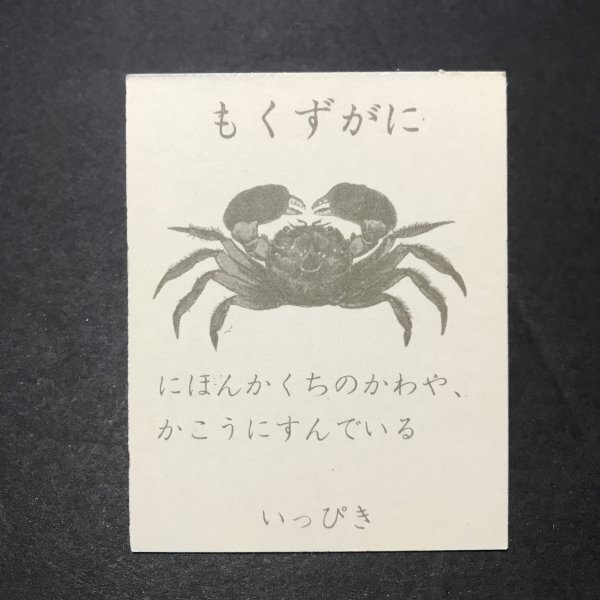 もくずがに
にほんかくちのかわや、
かこうにすんでいる
いっぴき